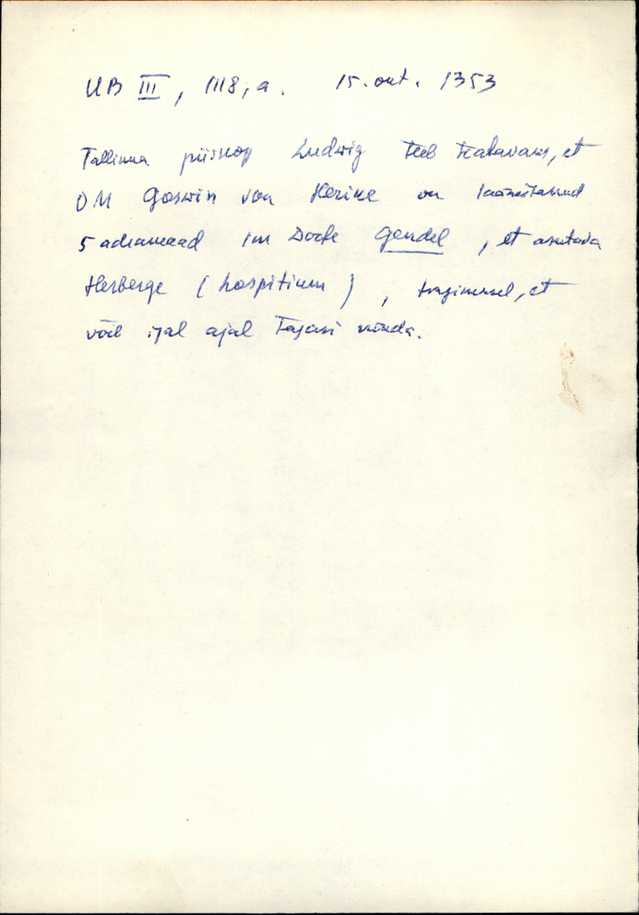 UB III, 1118, a. 15. okt. 1353
Tallinna piiskop Ludwig teeb teatavaks, et
OM Goswin von Herike on läänistanud
5 adramaad im Dorfe Gendel, et asutada
Herberge (hospitium), tingimusel, et
võib igal ajal tagasi võtta.